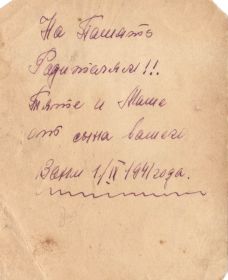 На Память
Родителям!!.
Тяте и Маме
от сына вашего
Вани 1/IV 1941 года.